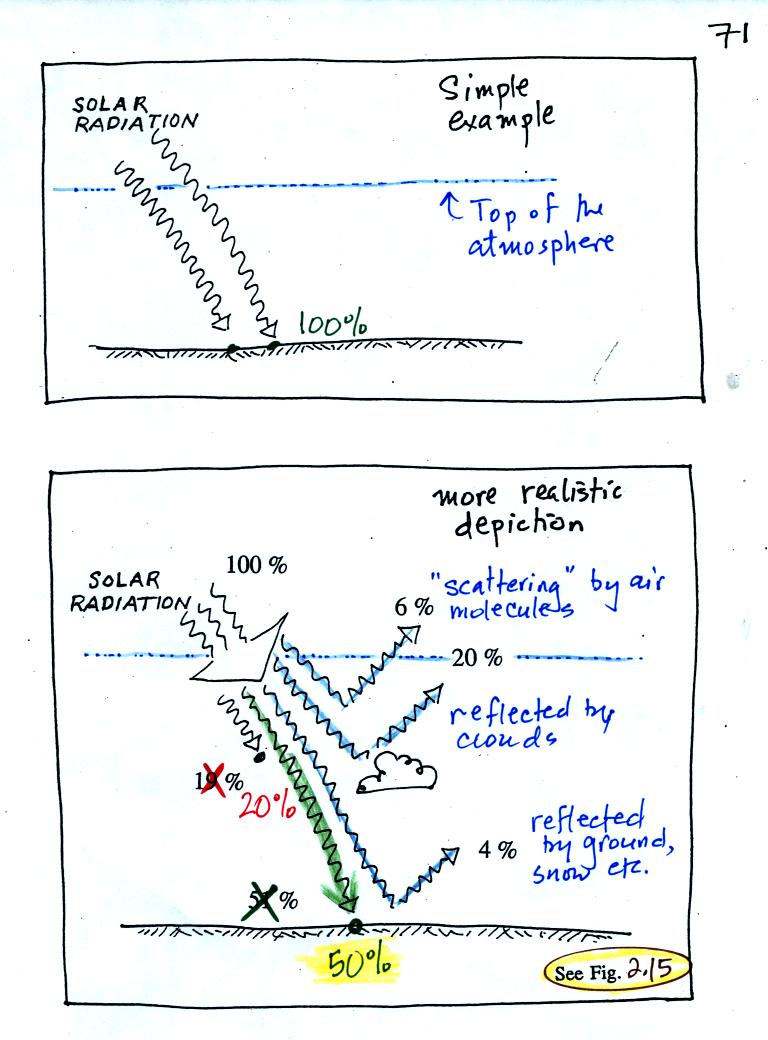 71
SOLAR
RADIATION
Simple
example
↑ Top of the
atmosphere
100%
more realistic
depiction
100 %
SOLAR
RADIATION
"scattering" by air
molecules
6 %
20 %
reflected by
clouds
19 %
20%
reflected
by ground,
snow etc.
4 %
51 %
50%
See Fig. 2.15